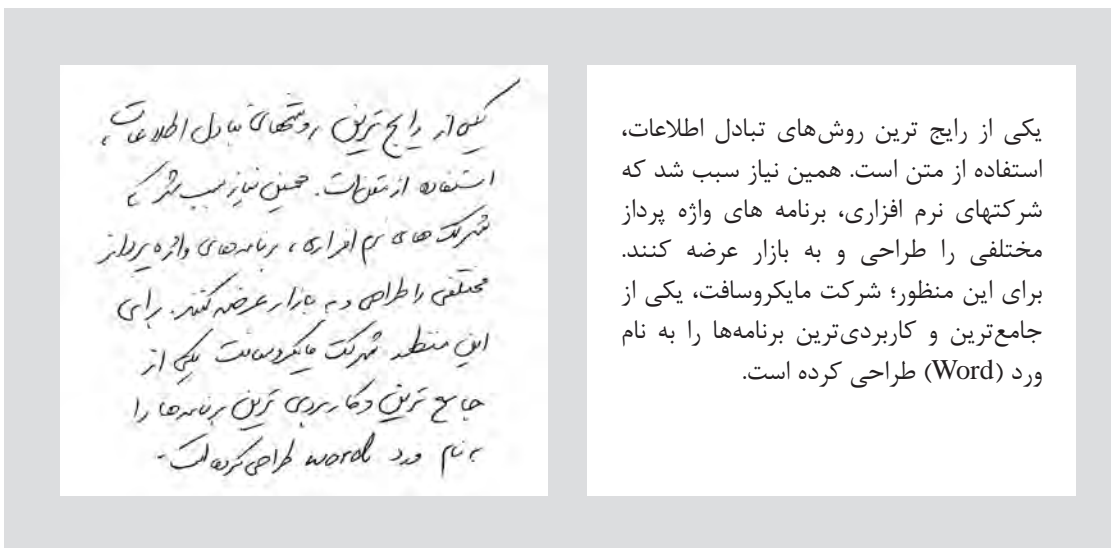 یکی از رایج ترین روش‌های تبادل اطلاعات،
استفاده از متن است. همین نیاز سبب شد که
شرکتهای نرم افزاری، برنامه های واژه پرداز
مختلفی را طراحی و به بازار عرضه کنند.
برای این منظور؛ شرکت مایکروسافت، یکی از
جامع‌ترین و کاربردی‌ترین برنامه‌ها را به نام
ورد (Word) طراحی کرده است.
یکی از رایج ترین روشهای تبادل اطلاعات،
استفاده از متن است. همین نیاز سبب شد که
شرکت های نرم افزاری، برنامه های واژه پرداز
مختلفی را طراحی و به بازار عرضه کنند. برای
این منظور شرکت مایکروسافت یکی از
جامع ترین و کاربردی ترین برنامه ها را
به نام ورد word طراحی کرده است.